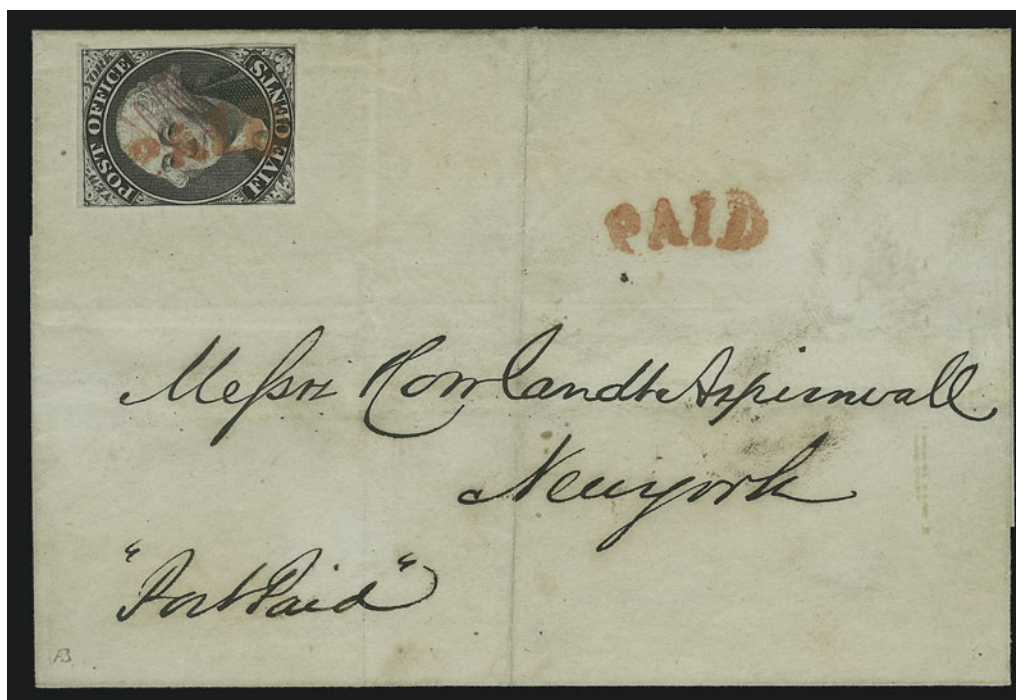 NEW YORK
POST OFFICE
FIVE CENTS
PAID
Messrs Howland & Aspinwall
New york
"Post Paid"